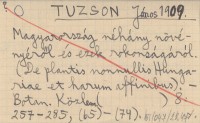 TUZSON János 1909.
Magyarország néhány növé-
nyéről és ezek rokonságáról.
(De plantis nonnullis Hunga-
riae et harum affinibus). -
Botan. Közlem. 8:
257-285, (65) - (74).